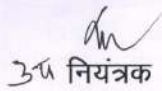 उप नियंत्रक